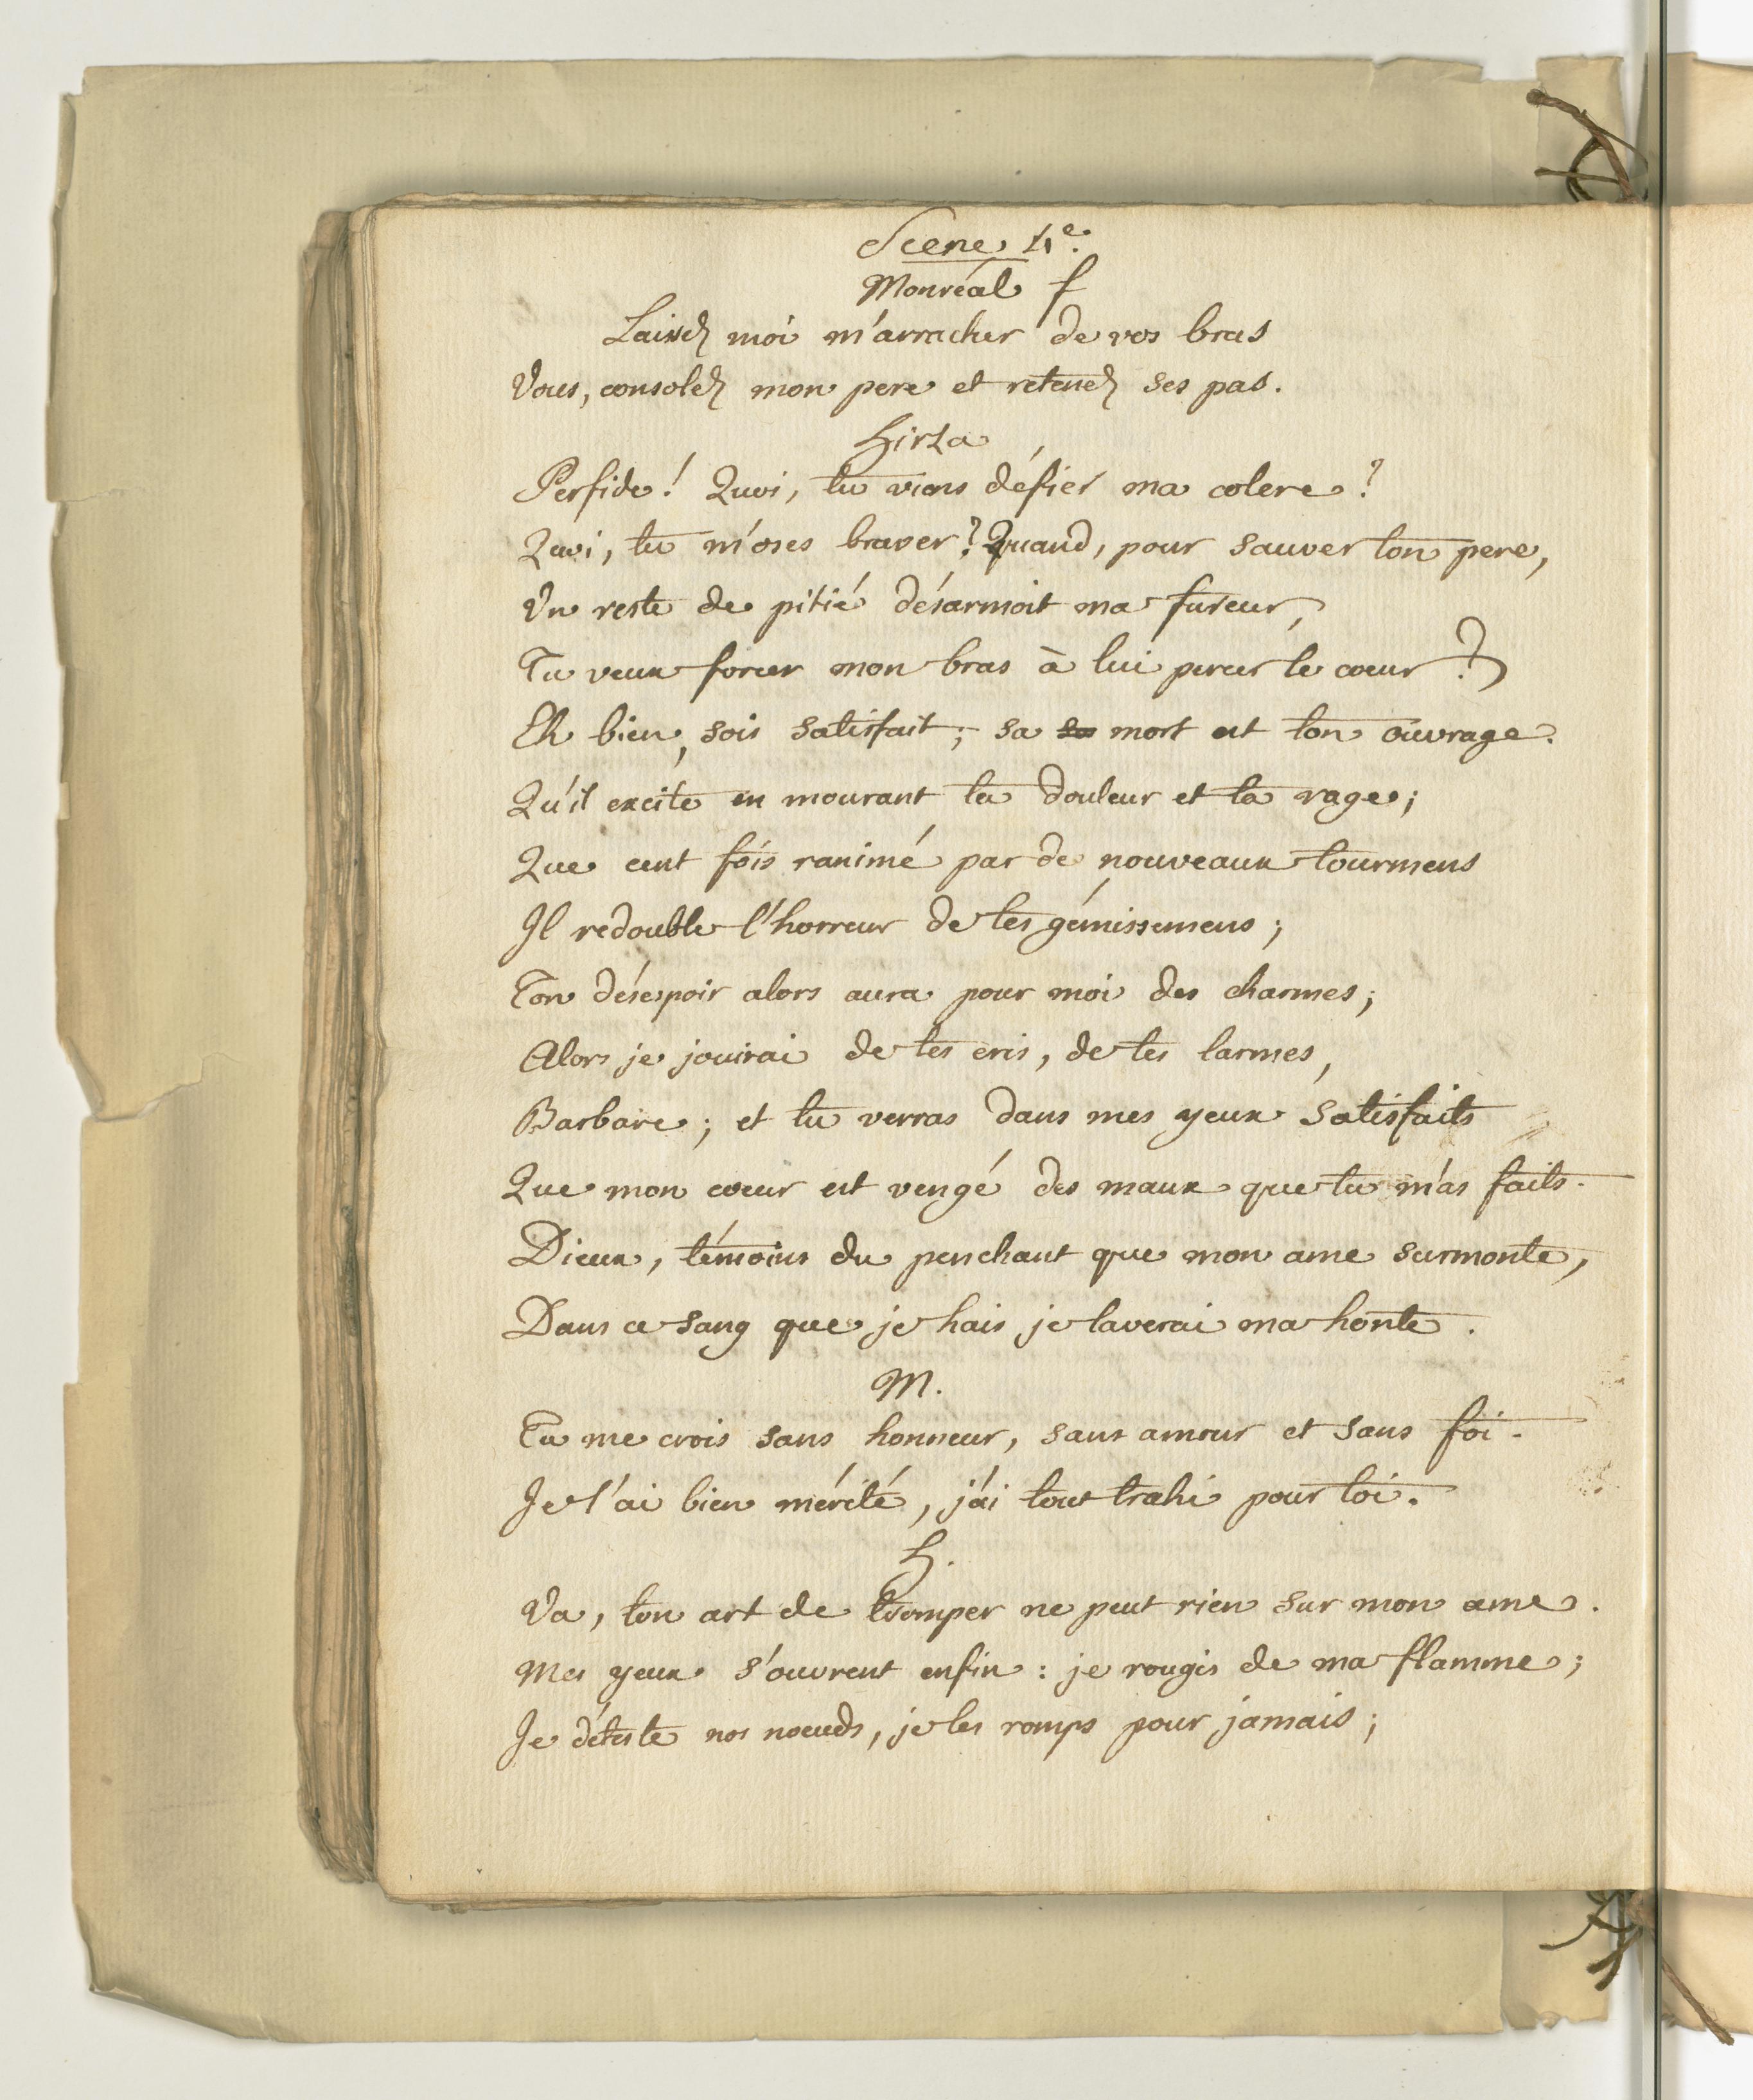 Scene 4e.
Monréal f
Laissez moi m'arracher de vos bras
Vous, consolez mon pere et retenez ses pas.
hirza
Perfide! Quoi, tu viens défier ma colere?
Quoi, tu m'oses braver? Quand, pour sauver ton pere,
Un reste de pitié désarmoit ma fureur,
Tu veux forcer mon bras à lui percer le coeur?
Eh bien, sois satisfait; sa mort est ton ouvrage.
Qu'il excite en mourant ta douleur et ta rage;
Que cent fois ranimé par de nouveaux tourmens
Il redouble l'horreur de tes gémissemens;
Ton désespoir alors aura pour moi des charmes;
Alors je jouirai de tes cris, de tes larmes,
Barbare; et tu verras dans mes yeux satisfaits
Que mon coeur est vengé des maux que tu m'as faits.
Dieux, témoins du penchant que mon ame surmonte,
Dans ce sang que je hais je laverai ma honte.
M.
Tu me crois sans honneur, sans amour et sans foi.
Je l'ai bien mérité, j'ai tout trahi pour toi.
h.
Va, ton art de tromper ne peut rien sur mon ame.
Mes yeux s'ouvrent enfin: je rougis de ma flamme;
Je déteste nos noeuds, je les romps pour jamais;